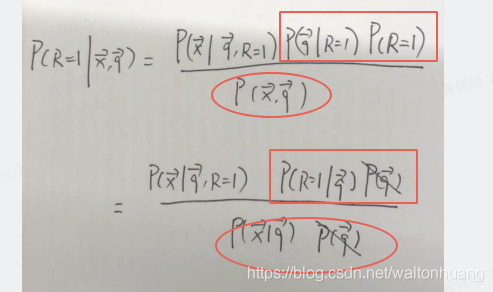 P(R=1|x⃗,q⃗) = P(x⃗|q⃗,R=1) P(q⃗|R=1) P(R=1)
P(x⃗,q⃗)
= P(x⃗|q⃗,R=1) P(R=1|q⃗) P(q⃗)
P(x⃗|q⃗) P(q⃗)
https://blog.csdn.net/waltonhuang